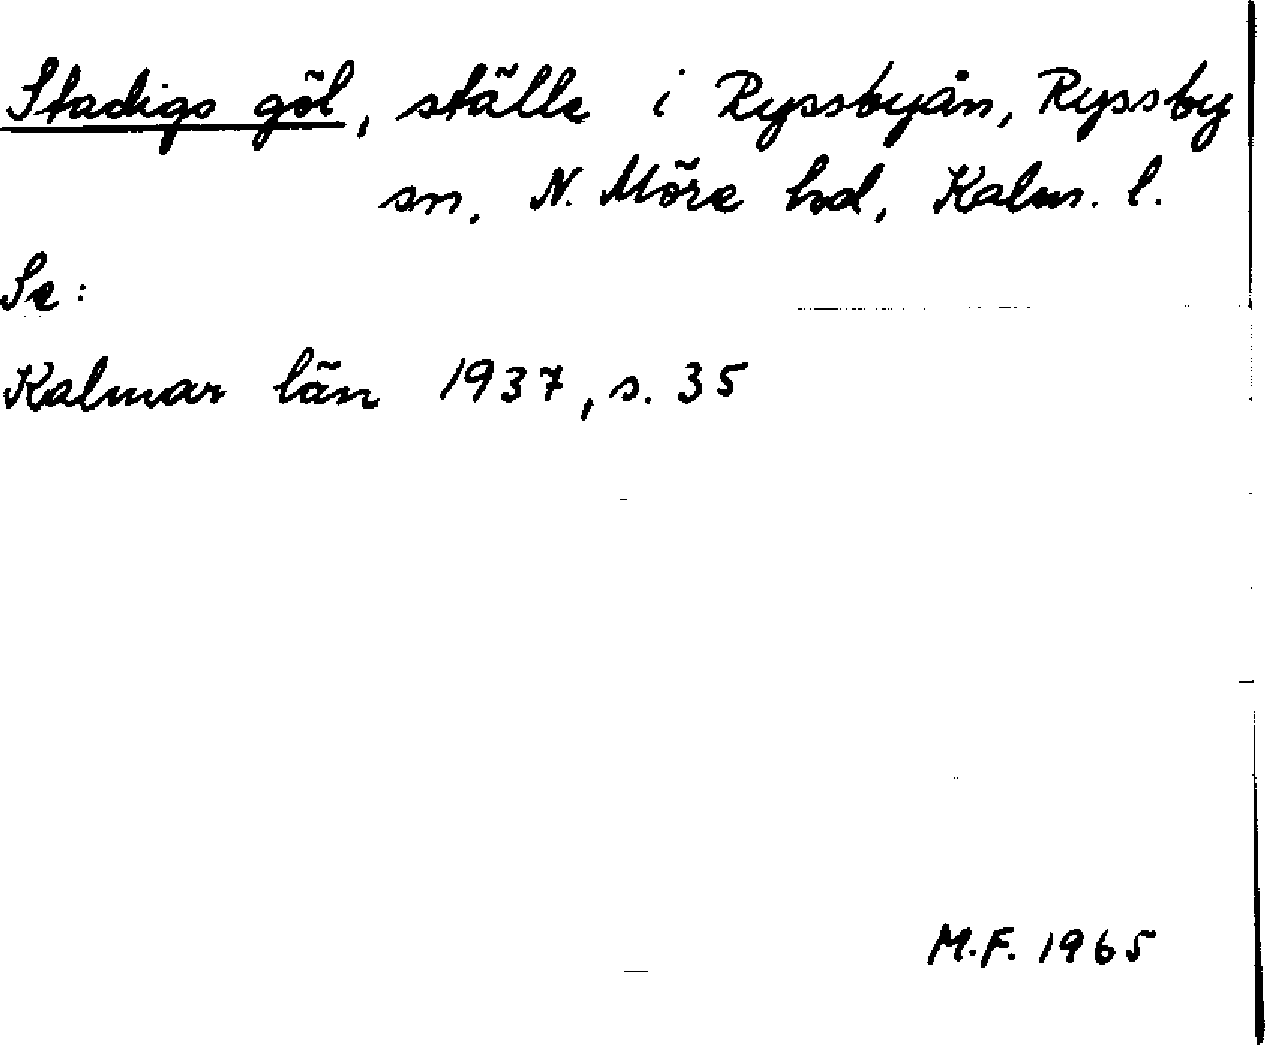 Stadigs göl, ställe i Ryssbyån, Ryssby
sn. N. Möre hd, Kalm. l.
Se:
Kalmar län 1937, s. 35
M.F. 1965